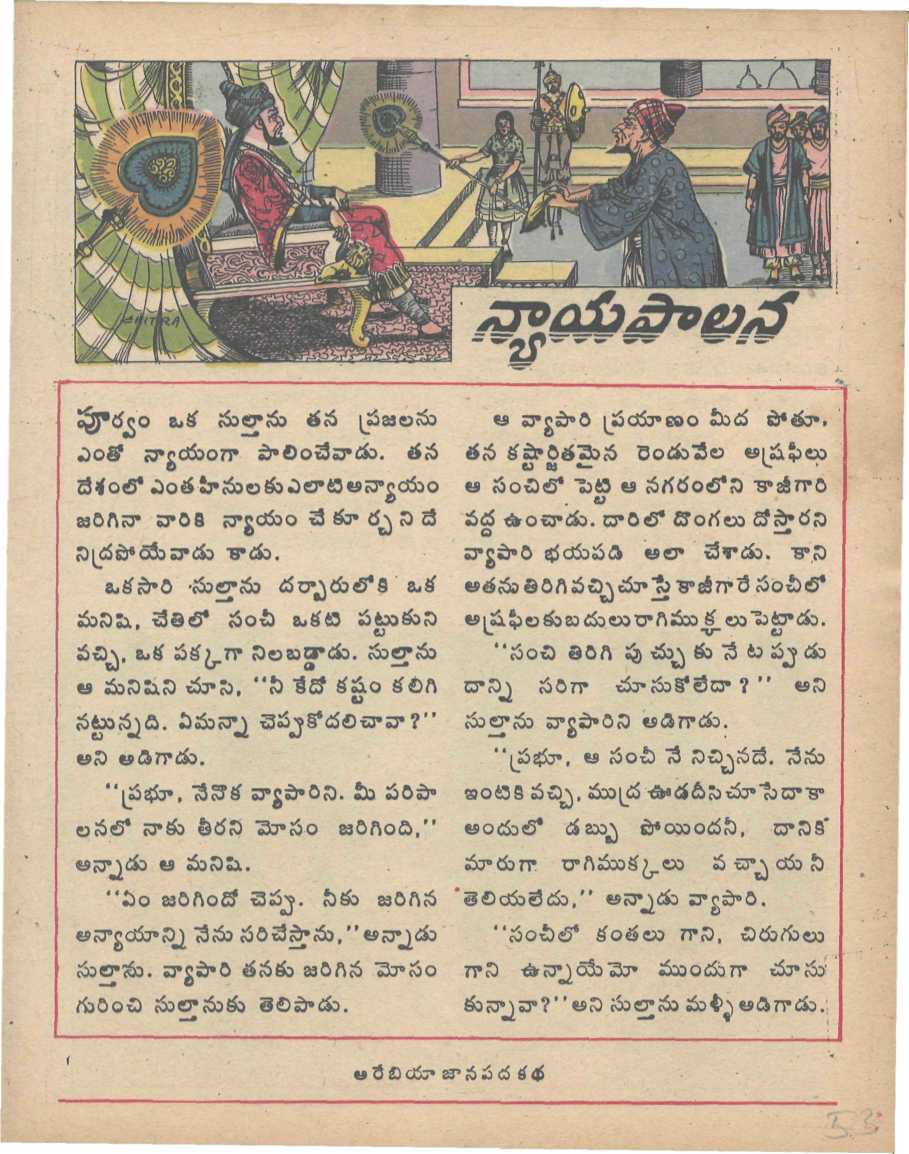 CHITRA
న్యాయపాలన
పూర్వం ఒక సుల్తాను తన ప్రజలను
ఎంతో న్యాయంగా పాలించేవాడు. తన
దేశంలో ఎంతహీనులకు ఎలాటి అన్యాయం
జరిగినా వారికి న్యాయం చేకూర్చనిదే
నిద్రపోయేవాడు కాడు.
ఒకసారి సుల్తాను దర్బారులోకి ఒక
మనిషి, చేతిలో సంచీ ఒకటి పట్టుకుని
వచ్చి, ఒక పక్కగా నిలబడ్డాడు. సుల్తాను
ఆ మనిషిని చూసి, ‘‘నీ కేదో కష్టం కలిగి
నట్టున్నది. ఏమన్నా చెప్పుకోదలిచావా?’’
అని అడిగాడు.
‘‘ప్రభూ, నేనొక వ్యాపారిని. మీ పరిపా
లనలో నాకు తీరని మోసం జరిగింది,’’
అన్నాడు ఆ మనిషి.
‘‘ఏం జరిగిందో చెప్పు. నీకు జరిగిన
అన్యాయాన్ని నేను సరిచేస్తాను,’’ అన్నాడు
సుల్తాను. వ్యాపారి తనకు జరిగిన మోసం
గురించి సుల్తానుకు తెలిపాడు.
ఆ వ్యాపారి ప్రయాణం మీద పోతూ,
తన కష్టార్జితమైన రెండువేల అష్రఫీలు
ఆ సంచిలో పెట్టి ఆ నగరంలోని కాజీగారి
వద్ద ఉంచాడు. దారిలో దొంగలు దోస్తారని
వ్యాపారి భయపడి అలా చేశాడు. కాని
అతను తిరిగి వచ్చి చూస్తే కాజీగారే సంచీలో
అష్రఫీలకు బదులు రాగిముక్కలు పెట్టాడు.
‘‘సంచి తిరిగి పుచ్చుకునేటప్పుడు
దాన్ని సరిగా చూసుకోలేదా?’’ అని
సుల్తాను వ్యాపారిని అడిగాడు.
‘‘ప్రభూ, ఆ సంచీ నే నిచ్చినదే. నేను
ఇంటికి వచ్చి, ముద్ర ఊడదీసి చూసేదాకా
అందులో డబ్బు పోయిందనీ, దానికి
మారుగా రాగిముక్కలు వచ్చాయనీ
తెలియలేదు,’’ అన్నాడు వ్యాపారి.
‘‘సంచీలో కంతలు గాని, చిరుగులు
గాని ఉన్నాయేమో ముందుగా చూసు
కున్నావా?’’ అని సుల్తాను మళ్ళీ అడిగాడు.
అరేబియా జానపద కథ
53